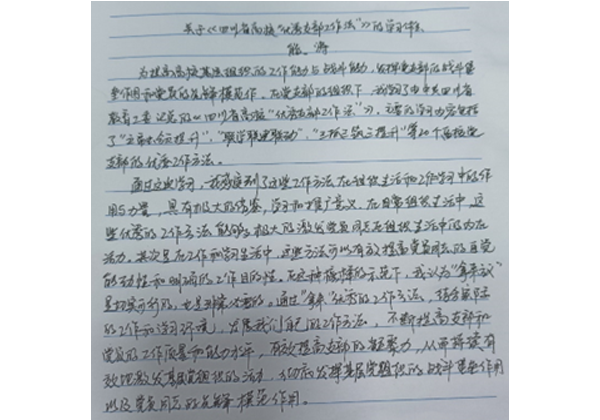 关于《四川省高校“优秀支部工作法”》的学习体会
熊 涛
为提高高校基层组织的工作能力与战斗能力，发挥党支部的战斗堡
垒作用和党员的先锋模范作，在党支部的组织下，我学习了由中共四川省
教育工委 的《四川省高校“优秀支部工作法”》，主要的学习内容包括
了“ 提升”，“ 联建联动”，“三抓三筑三提升”等20个高校党
支部的优秀工作方法。
通过这些学习，我感受到了这些工作方法在组织生活和工作学习中的作
用与力量，具有极大的借鉴，学习和推广意义。在日常组织生活中，这
些优秀的工作方法能够极大的激发党员同志在组织生活中的内在
活力。其次是在工作和学习生活中，这些方法可以有效提高党员同志的自觉
能动性和明确的工作目的性。在这种榜样的示范下，我认为“拿来主义”
是切实可行的，也是非常必要的。通过“拿来”优秀的工作方法，结合实际
的工作和学习环境，发展我们自己的工作方法，不断提高支部和
党员的工作质量和能力水平，有效提高支部的凝聚力，从而持续有
效地激发基层党组织的活力，切实发挥基层党组织的战斗堡垒作用
以及党员同志的先锋模范作用。